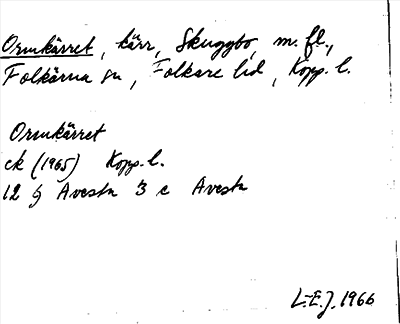 Ormkärret, kärr, Skuggbo, m. fl.,
Folkärna sn, Folkare hd, Kopp. l.
Ormkärret
ek (1965) Kopp. l.
12 G Avesta 3 c Avesta
L-E.J. 1966